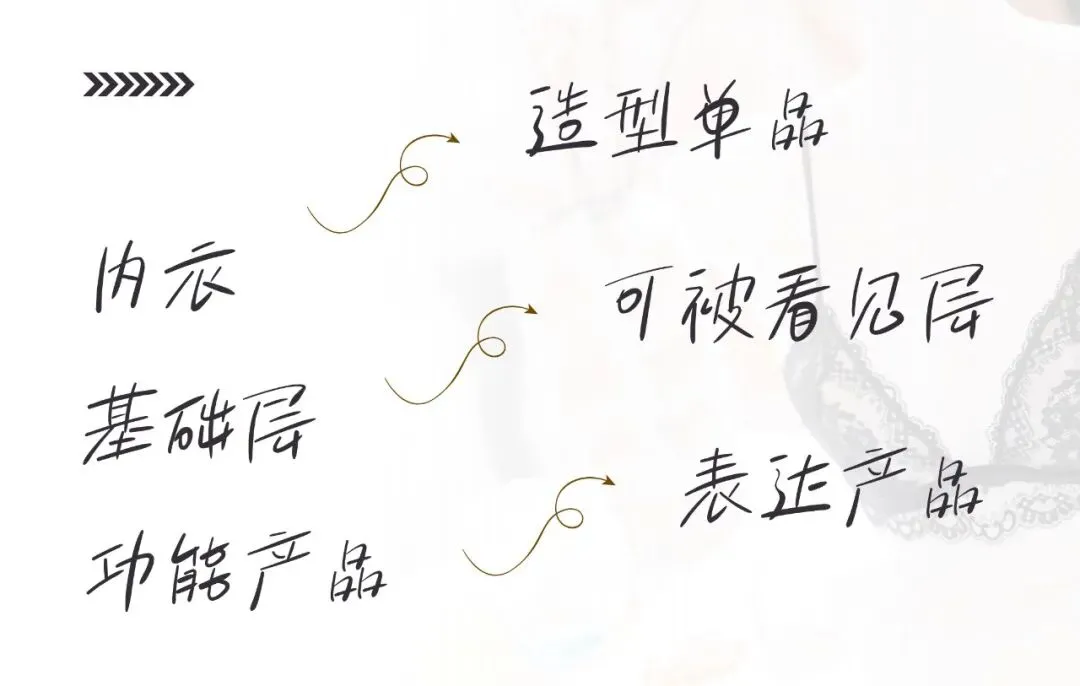 造型单品
内衣
可被看见层
基础层
表达产品
功能产品